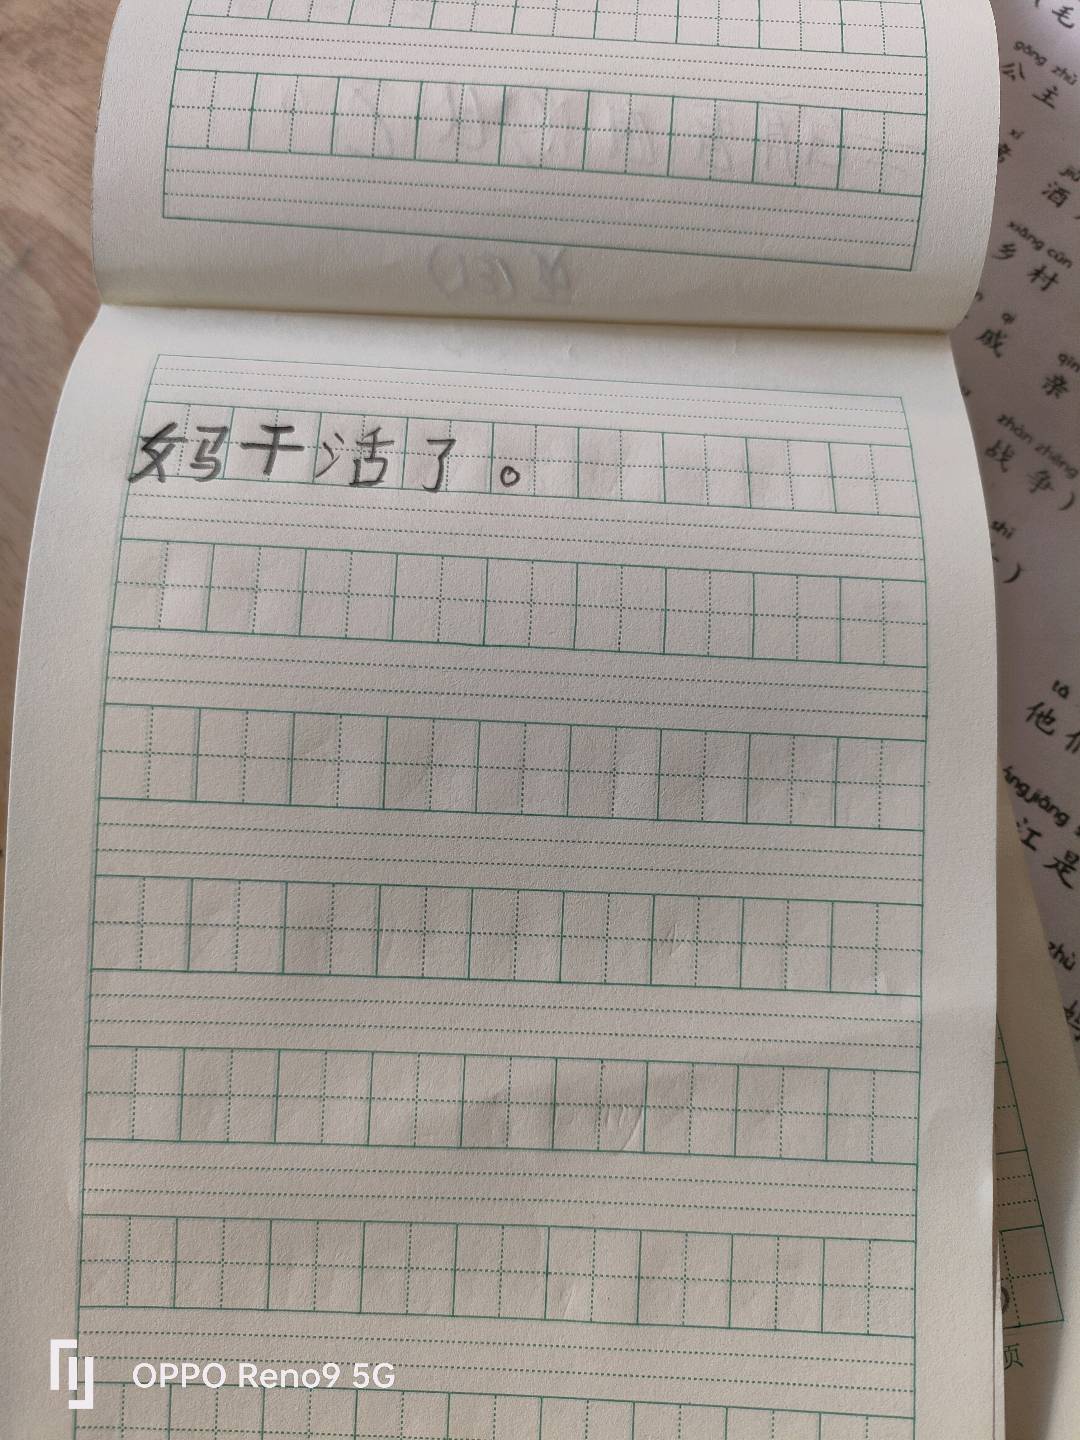 妈干活了。
毛
gōng zhǔ
公主
xí
jiǔ
酒
xiāng cūn
乡村
qi
戚
qīn
亲
zhàn zhēng
战争）
shi
）
tā
他们
jiāng
江是
zhù
页
OPPO Reno9 5G